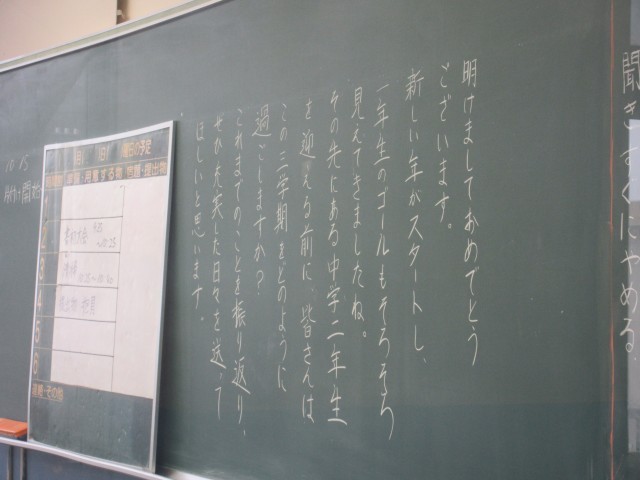 聞き すぐにやめる
明けましておめでとう
ございます。
新しい年がスタートし、
一年生のゴールもそろそろ
見えてきましたね。
その先にある中学二年生
を迎える前に、皆さんは
この三学期をどのように
過ごしますか?
これまでのことを振り返り、
ぜひ充実した日々を送って
ほしいと思います。
月 日 曜日の予定
1
2
3
4
5
6
連絡・その他
10:15